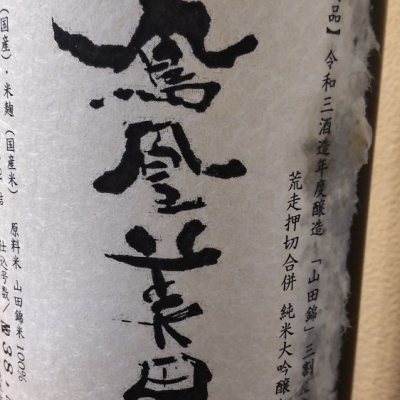 品】 令和三酒造年度醸造 「山田錦」三割
荒走押切合併 純米大吟醸
鳳凰美田
原料米 山田錦米100%
仕込号数/
(国産)・米麹 (国産米)